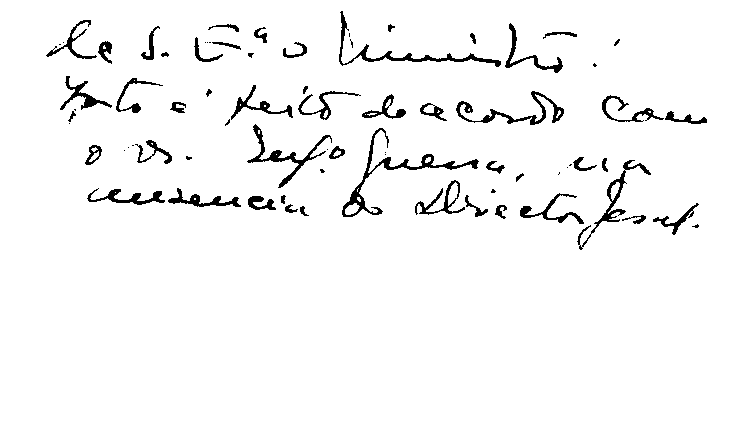 de S. Ex.ª o Ministro.
Isto é feito de acordo com
o Sr. Eng.º Guerra, na
ausencia do Director Geral.